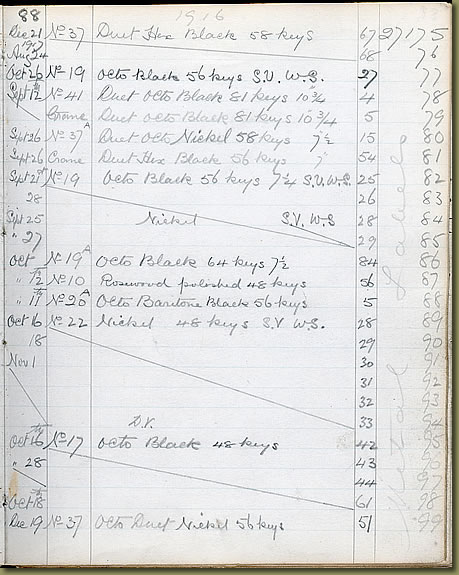 88 1916
Dec 21 No 37 Duet Hex Black 58 keys 67 27175
1917 Aug 24 68 76
Oct 26 No 19 Octo Black 56 keys S.V. W.S. 27 77
Sept 12 No 41 Duet Octo Black 81 keys 10 3/4 4 78
Crane Duet Octo Black 81 keys 10 3/4 5 79
Sept 26 No 37 A Duet Octo Nickel 58 keys 7 1/2 15 80
Sept 26 Crane Duet Hex Black 56 keys " 54 81
Sept 21 No 19 Octo Black 56 keys 7 1/4 S.V. W.S. 25 82
28 26 83
Sept 25 Nickel S.V. W.S 28 84
" 27 29 85
Oct No 19 A Octo Black 64 keys 7 1/2 84 86
" 12 No 10 Rosewood polished 48 keys 56 87
" 11 No 20 A Octo Baritone Black 56 keys 5 88
Oct 16 No 22 Nickel 48 keys S.V W.S. 28 89
18 29 90
Nov 1 30 91
31 92
32 93
D.V. 33 94
Oct 16 No 17 Octo Black 48 keys 42 95
" 28 43 96
44 97
Oct 18 61 98
Dec 19 No 37 Octo Duet Nickel 56 keys 51 99
Metal Labels